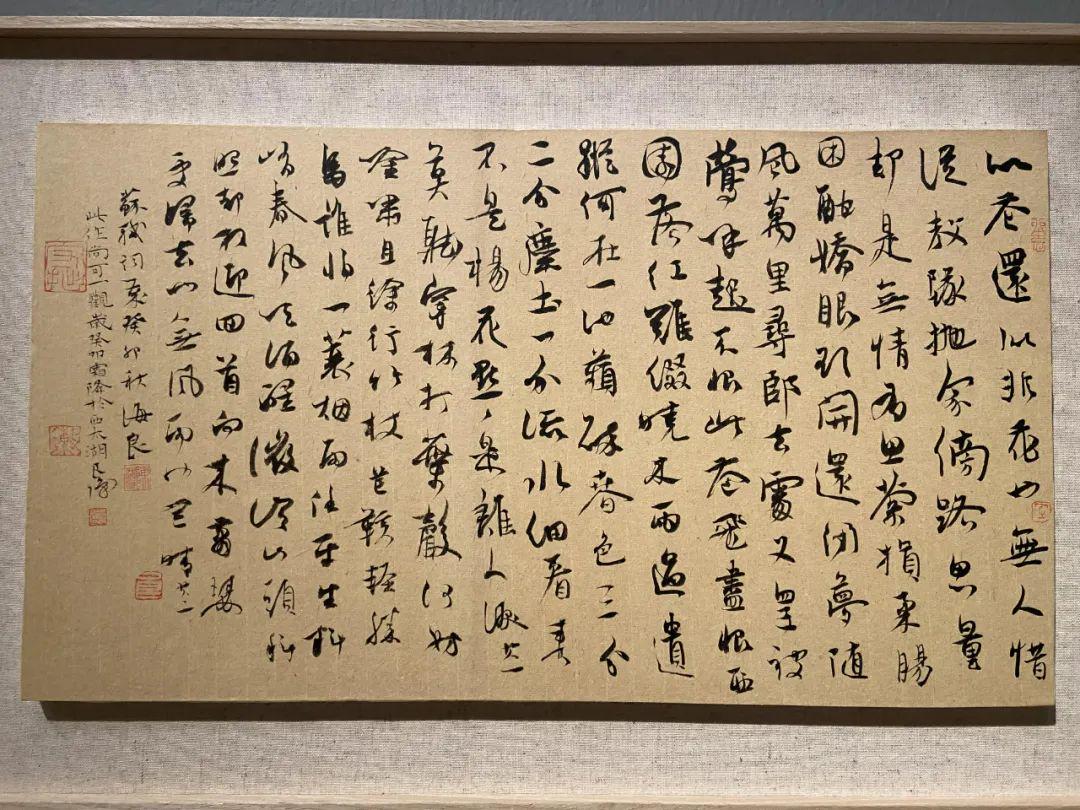 似花還似非花也無人惜
從教隊拋家傍路思量
却是無情有思縈損柔腸
困酣嬌眼欲開還閉夢隨
風萬里尋郎去處又還被
鶯呼起不恨此花飛盡恨西
園落紅難綴曉來雨過遺
蹤何在一池萍碎春色三分
二分塵土一分流水細看來
不是楊花點點是離人淚其一
莫聽穿林打葉聲何妨
吟嘯且徐行竹杖芒鞋輕勝
馬誰怕一蓑烟雨任平生料
峭春風吹酒醒微冷山頭斜
照却相迎回首向來蕭瑟
處歸去也無風雨也無晴其二
蘇軾詞癸卯秋海良
此作尚可一觀歲癸卯霜降於西太湖